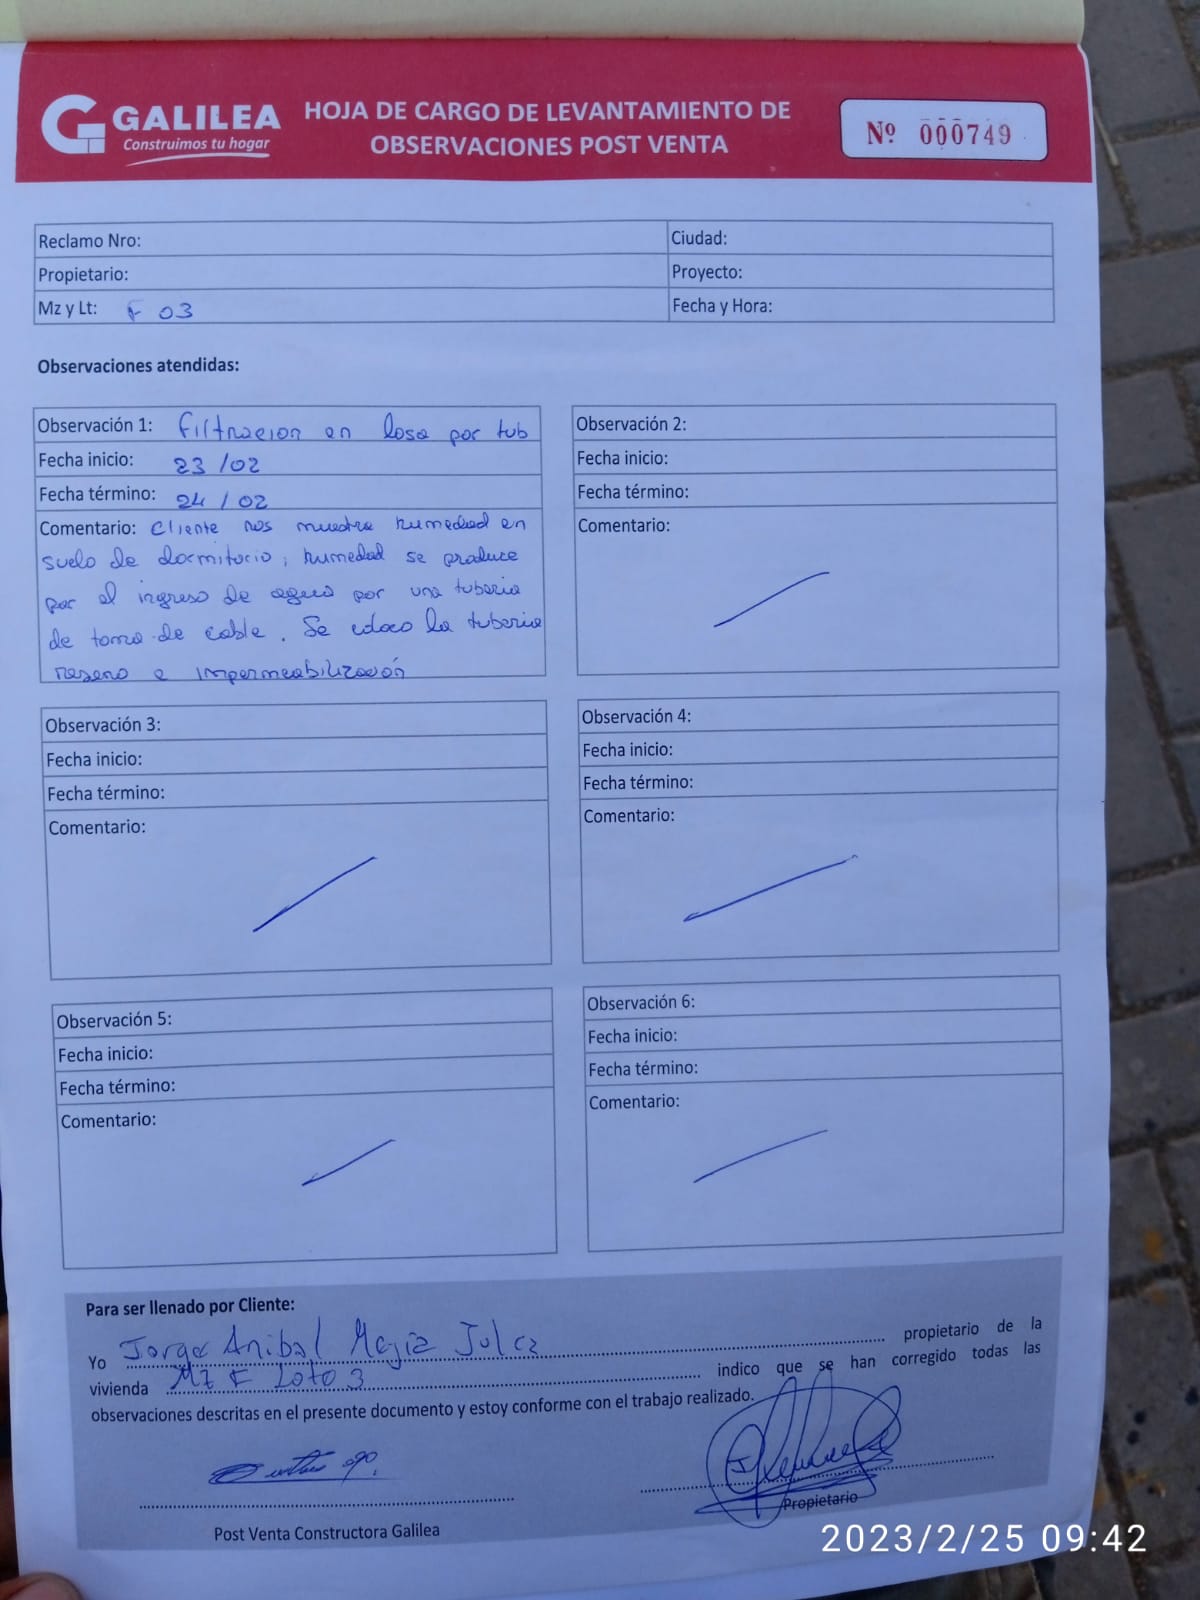 GALILEA
Construimos tu hogar
HOJA DE CARGO DE LEVANTAMIENTO DE
OBSERVACIONES POST VENTA
Nº 000749
Reclamo Nro:
Ciudad:
Propietario:
Proyecto:
Mz y Lt: F 03
Fecha y Hora:
Observaciones atendidas:
Observación 1: Filtracion en losa por tub
Fecha inicio: 23/02
Fecha término: 24/02
Comentario: Cliente nos muestra humedad en
suelo de dormitorio, humedad se produce
por el ingreso de agua por una tuberia
de toma de cable. Se la tuberia
e impermeabilización
Observación 2:
Fecha inicio:
Fecha término:
Comentario:
Observación 3:
Fecha inicio:
Fecha término:
Comentario:
Observación 4:
Fecha inicio:
Fecha término:
Comentario:
Observación 5:
Fecha inicio:
Fecha término:
Comentario:
Observación 6:
Fecha inicio:
Fecha término:
Comentario:
Para ser llenado por Cliente:
Yo Jorge Anibal Mejia Julca propietario de la
vivienda Mz F Lote 3 indico que se han corregido todas las
observaciones descritas en el presente documento y estoy conforme con el trabajo realizado.
Post Venta Constructora Galilea
Propietario
2023/2/25 09:42